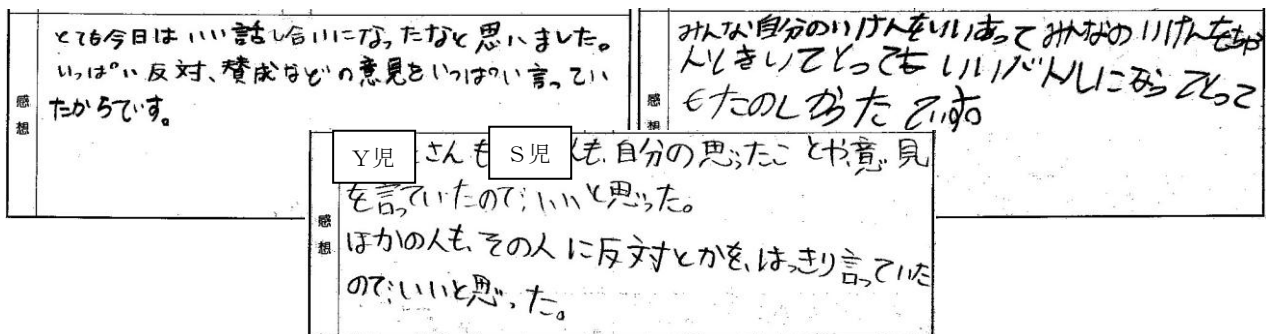 とても今日はいい話し合いになったなと思いました。
いっぱい反対、賛成などの意見をいっぱい言ってい
たからです。
感想
みんな自分のいけんをいいあってみんなのいけんをちゃ
んときいてとってもいいバトルになってとって
もたのしかったです。
感想
Y児 さんも S児 くんも、自分の思ったことや、意見
を言っていたので、いいと思った。
ほかの人も、その人に反対とかを、はっきり言っていた
ので、いいと思った。
感想